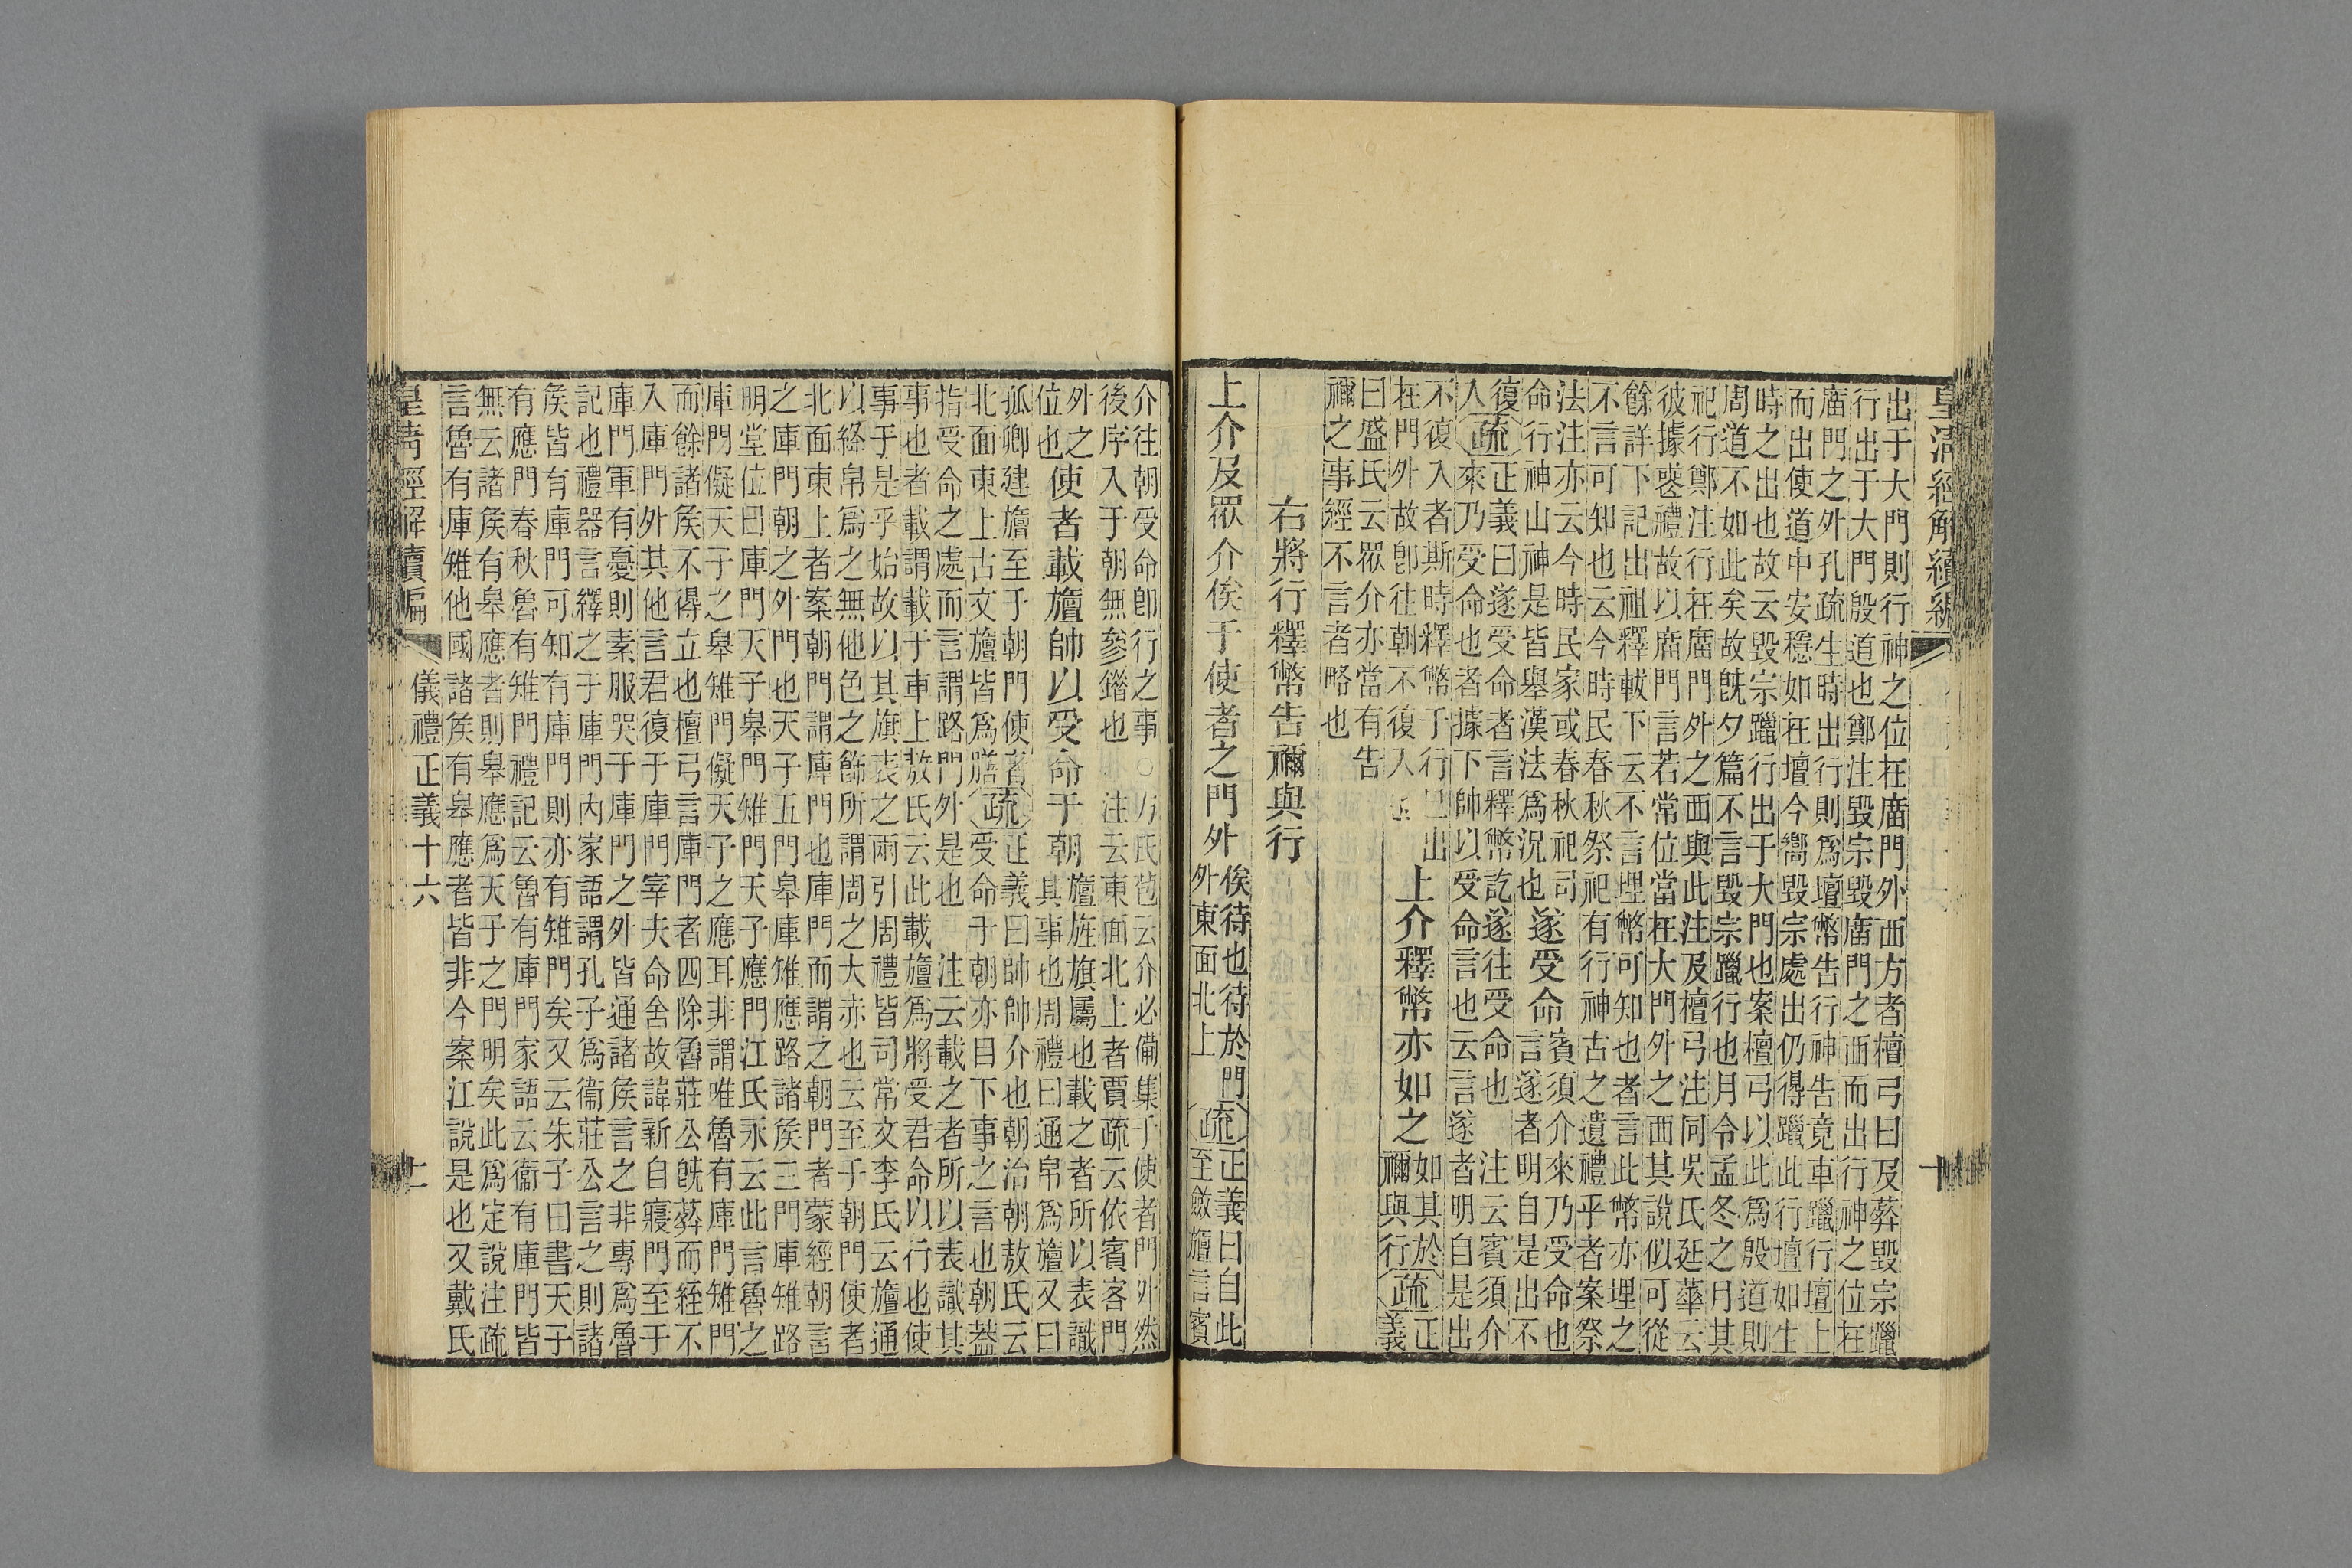 皇清經解續編
十
出于大門則行神之位在廟門外西方者檀弓曰及葬毀宗躐
行出于大門殷道也鄭注毀宗毀廟門之西而出行神之位在
廟門之外孔疏生時出行則爲壇幣告行神告竟車躐行壇上
而出使道中安穩如在壇今嚮毀宗處出仍得躐此行壇如生
時之出也故云毀宗躐行出于大門也案檀弓以此爲殷道則
周道不如此矣故旣夕篇不言毀宗躐行也月令孟冬之月其
祀行鄭注行在廟門外之西與此注及檀弓注同吳氏廷華云
彼據惑禮故以廟門言若常位當在大門外之西其說似可從
餘詳下記出祖釋軷下云不言埋幣可知也者言此幣亦埋之
不言可知也云今時民春秋祭祀有行神古之遺禮乎者案祭
法注亦云今時民家或春秋祀司
命行神山神是皆舉漢法爲況也
遂受命
賓須介來乃受命也
言遂者明自是出不
復
入
疏
正義曰遂受命者言釋幣訖遂往受命也　注云賓須介
來乃受命也者據下帥以受命言也云言遂者明自是出
不復入者斯時釋幣于行已出
在門外故卽往朝不復入
上介釋幣亦如之
如其於
禰與行
疏
正
義
曰盛氏云眾介亦當有告
禰之事經不言者略也
右將行釋幣告禰與行
上介及眾介俟于使者之門外
俟待也待於門
外東面北上
疏
正義曰自此
至斂旜言賓
介往朝受命卽行之事○方氏苞云介必備集于使者門外然
後序入于朝無參錯也　注云東面北上者賈疏云依賓客門
外之
位也
使者載旜帥以受命于朝
旜旌旗屬也載之者所以表識
其事也周禮曰通帛爲旜又曰
孤卿建旜至于朝門使者
北面東上古文旜皆爲膳
疏
正義曰帥帥介也朝治朝敖氏云
受命于朝亦目下事之言也朝蓋
指受命之處而言謂路門外是也　注云載之者所以表識其
事也者載謂載于車上敖氏云此載旜爲將受君命以行也使
事于是乎始故以其旗表之兩引周禮皆司常文李氏云旜通
以絳帛爲之無他色之飾所謂周之大赤也云至于朝門使者
北面東上者案朝門謂庫門也庫門而謂之朝門者蒙經朝言
之庫門朝之外門也天子五門皋庫雉應路諸矦三門庫雉路
明堂位曰庫門天子皋門雉門天子應門江氏永云此言魯之
庫門儗天子之皋雉門儗天子之應耳非謂唯魯有庫門雉門
而餘諸矦不得立也檀弓言庫門者四除魯莊公旣葬而絰不
入庫門外其他言君復于庫門宰夫命舍故諱新自寢門至于
庫門軍有憂則素服哭于庫門之外皆通諸矦言之非專爲魯
記也禮器言繹之于庫門內家語謂孔子爲衞莊公言之則諸
矦皆有庫門可知有庫門則亦有雉門矣又云朱子曰書天子
有應門春秋魯有雉門禮記云魯有庫門家語云衞有庫門皆
無云諸矦有皋應者則皋應爲天子之門明矣此爲定說注疏
言魯有庫雉他國諸矦有皋應者皆非今案江說是也又戴氏
皇淸經解續編
儀禮正義十六